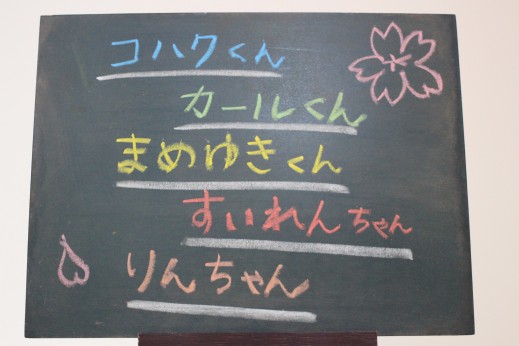 コハクくん
カールくん
まめゆきくん
すいれんちゃん
りんちゃん